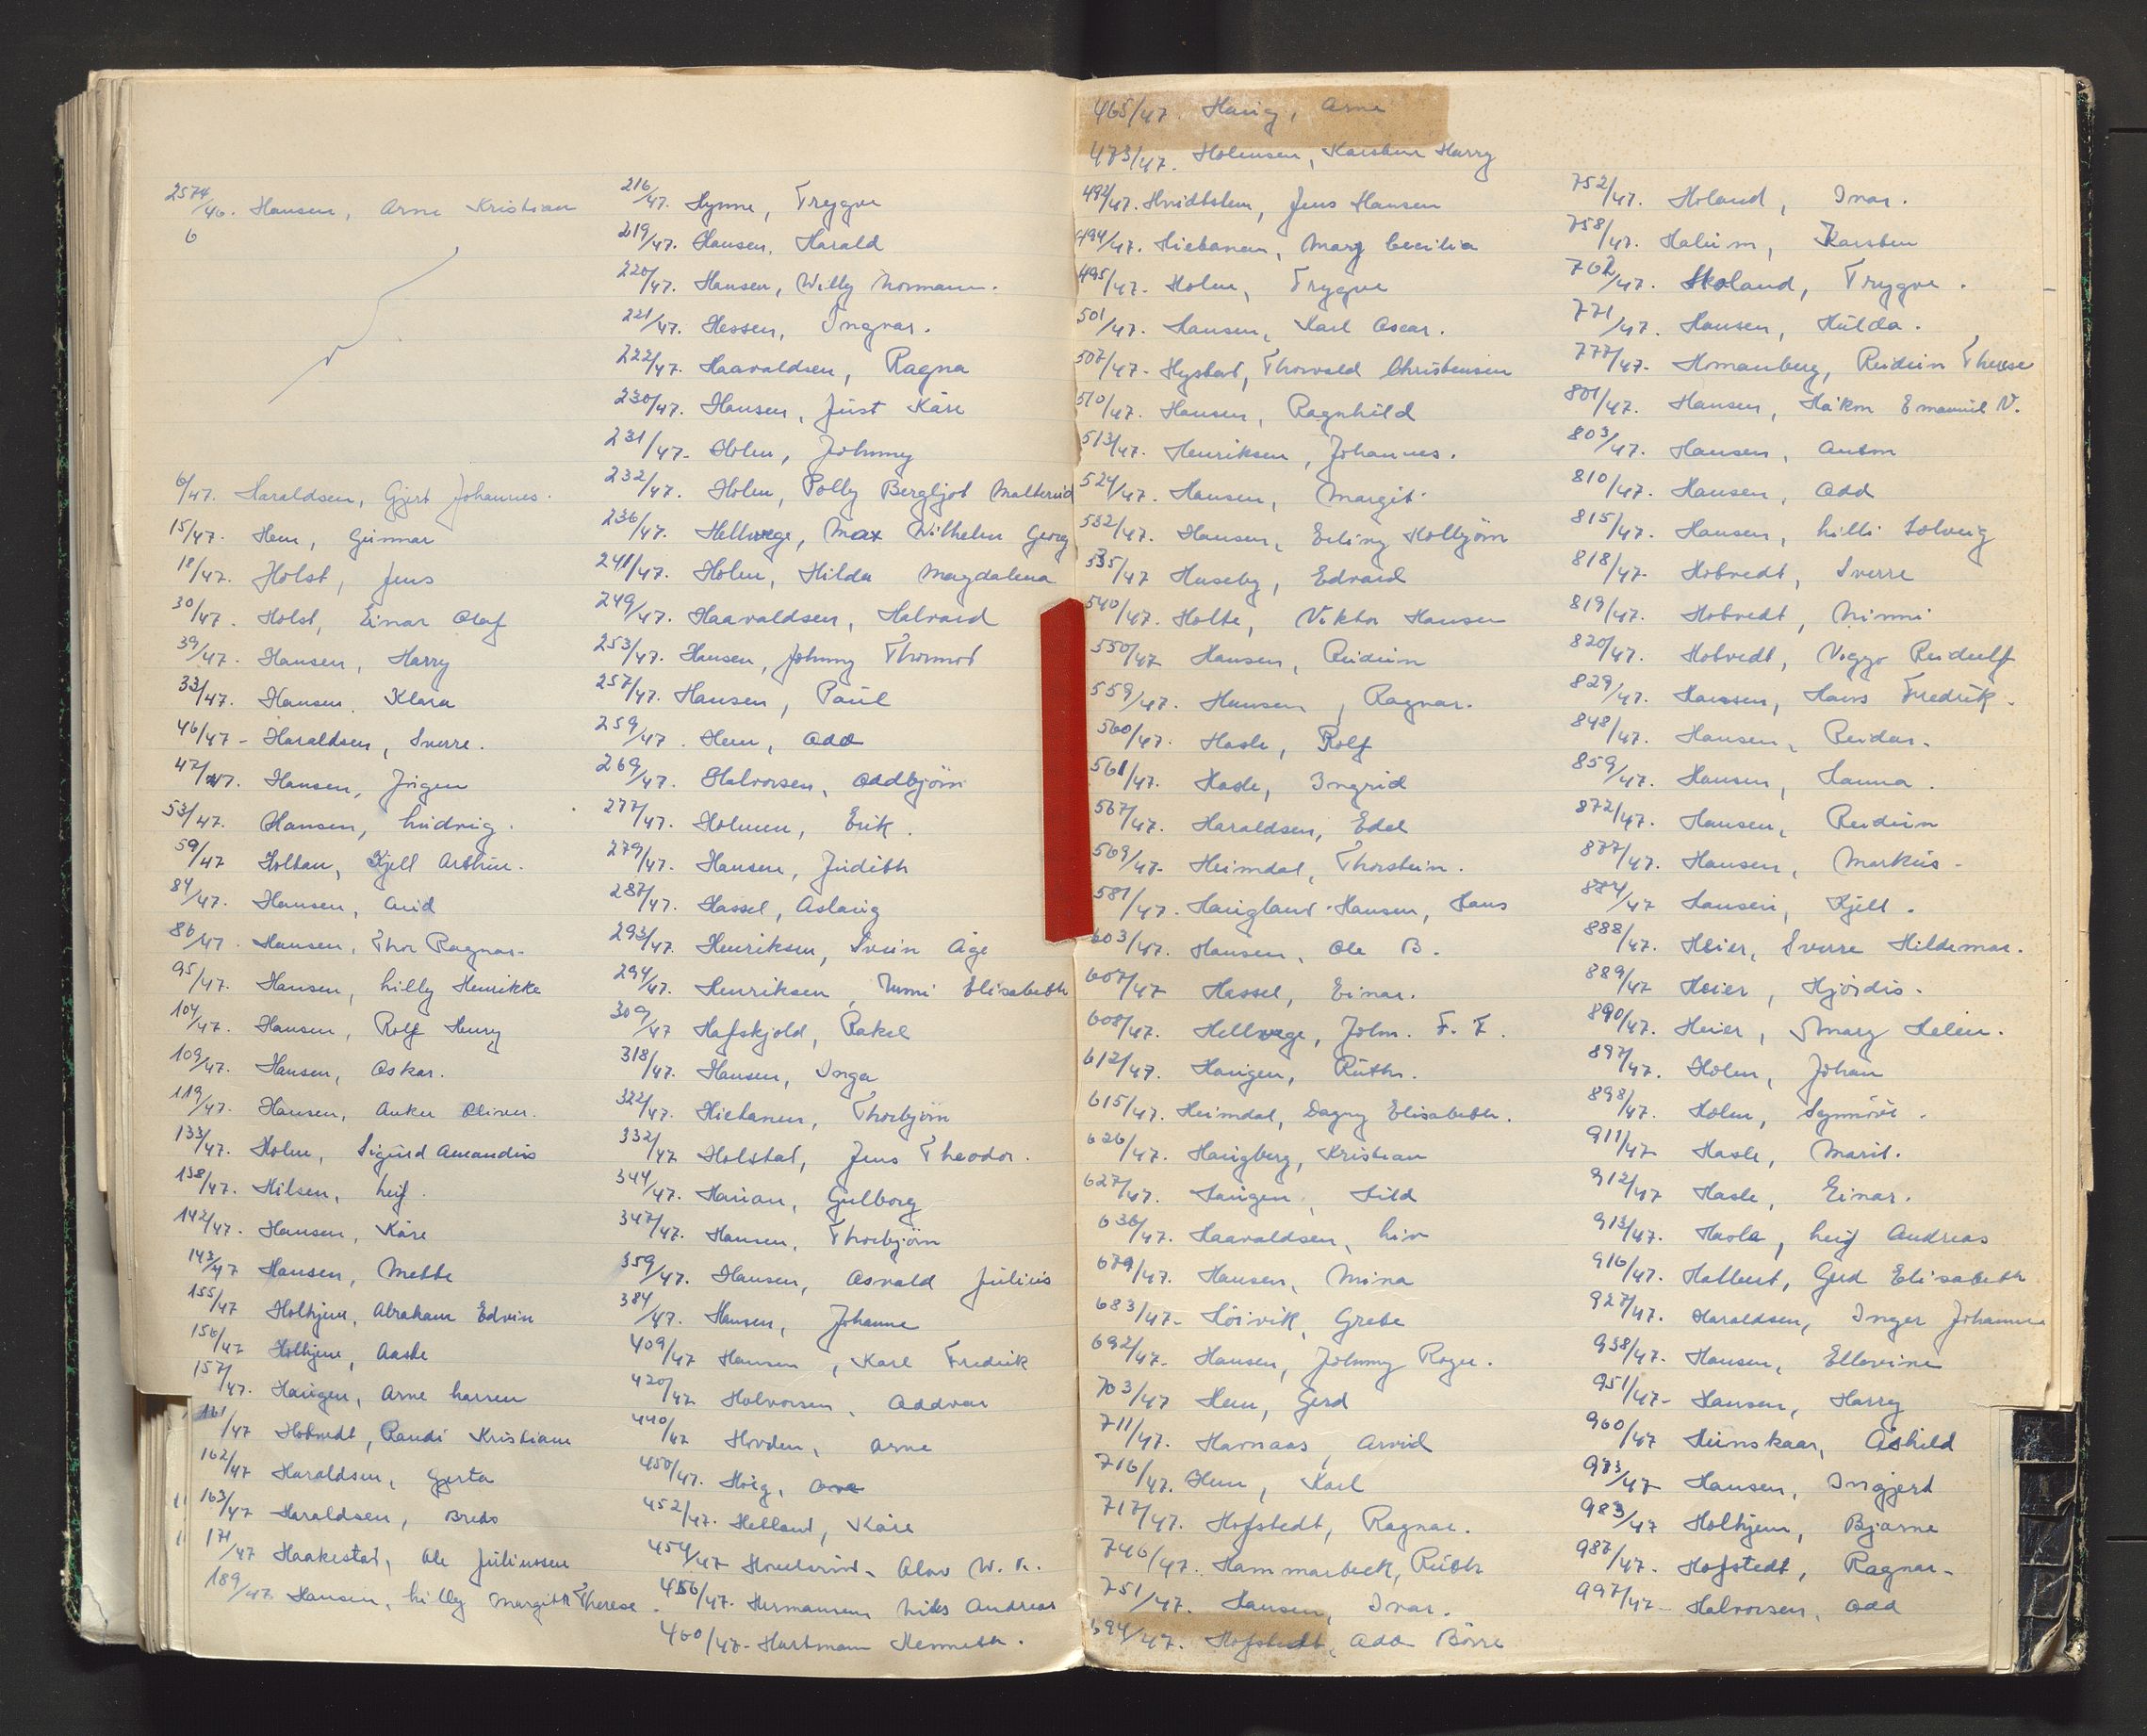 2574/46. Hansen, Arne Kristian
6
6/47. Haraldsen, Gjert Johannes.
15/47. Hem, Gunnar
18/47. Holst, Jens
30/47. Holst, Einar Olaf
39/47. Hansen, Harry
33/47. Hansen, Klara
46/47 - Haraldsen, Sverre.
47/47. Hansen, Jörgen
53/47. Hansen, Ludvig.
59/47 Holtan, Kjell Arthur.
84/47. Hansen, Arid
86/47. Hansen, Thor Ragnar.
95/47. Hansen, Lilly Henrikke
104/47. Hansen, Rolf Henry
109/47. Hansen, Oskar.
119/47. Hansen, Anker Oliver.
133/47. Holm, Sigurd Amandus
138/47. Hilsen, Leif.
142/47. Hansen, Kåre
143/47 Hansen, Mette
155/47 Holhjem, Abraham Edvin
156/47 Holhjem, Aaste
157/47. Haugen, Arne Larsen
161/47 Hotvedt, Randi Kristiane
162/47 Haraldsen, Gjerta
163/47 Haraldsen, Bredo
171/47 Haakestad, Ole Juliussen
189/47. Hansen, Lilly Margith Therese.
216/47. Hynne, Trygve
219/47. Hansen, Harald
220/47. Hansen, Willy Normann.
221/47. Hessen, Ingvar.
222/47. Haavaldsen, Ragna
230/47. Hansen, Just Kåre
231/47. Holm, Johnny
232/47. Holm, Polly Bergljot Malterud
236/47. Hellwege, Max Wilhelm Georg
241/47. Holm, Hilda Magdalena
249/47. Haavaldsen, Halvard
253/47. Hansen, Johnny Thormod
257/47. Hansen, Paul
259/47. Hem, Odd
269/47. Halvorsen, Oddbjörn
277/47. Holmen, Erik.
279/47. Hansen, Judith
287/47. Hassel, Aslaug
293/47. Henriksen, Svein Åge
294/47. Henriksen, Mimi Elisabeth
309/47 Hafskjold, Rakel
318/47. Hansen, Inga
322/47. Hietanen, Thorbjörn
332/47 Holstad, Jens Theodor.
344/47. Harian, Gulborg
347/47. Hansen, Thorbjörn
359/47. Hansen, Osvald Julius
384/47. Hansen, Johanne
409/47 Hansen, Karl Fredrik
420/47 Halvorsen, Oddvar
440/47 Hovden, Arne
450/47. Haig,
452/47. Hetland, Kåre
454/47 Olav W. K.
456/47. Hermansen Nils Andreas
460/47 - Hartmann Kenneth.
465/47. Haug, Arne
473/47. Holmsen, Karsten Harry
492/47. Hvidtsten, Jens Hansen
494/47. Hietanen, Mary Cecilia
495/47. Holm, Trygve
501/47. Hansen, Karl Oscar.
507/47 - Hystad, Thorvald Christensen
510/47. Hansen, Ragnhild
513/47. Henriksen, Johannes.
524/47. Hansen, Margit
532/47. Hansen, Erling Kolbjörn
535/47 Huseby, Edvard
540/47. Holte, Viktor Hansen
550/47 Hansen, Reidun
559/47. Hansen, Ragnar.
560/47. Hasle, Rolf
561/47. Hasle, Ingrid
567/47. Haraldsen, Edel
569/47. Heimdal, Thorstein.
581/47. Haugland-Hansen, Hans
603/47. Hansen, Ole B.
607/47 Hassel, Einar.
608/47. Hellwege, John. F. F.
612/47. Haugen, Ruth.
615/47. Heimdal, Dagny Elisabeth.
626/47. Haugberg, Kristian
627/47. Haugen, Hild
636/47. Haavaldsen, Liv
679/47. Hansen, Mina
683/47. Höivik, Grete
692/47. Hansen, Johnny Roger.
703/47 Hem, Gerd
711/47. Harnaas, Arvid
716/47. Hem, Karl
717/47. Hofstedt, Ragnar.
746/47. Hammarbeck, Ruth
751/47. Hansen, Ivar.
694/47. Hofstedt, Odd Börre
752/47. Holand, Ivar.
758/47. Halum, Karsten
762/47. Skoland, Trygve.
771/47. Hansen, Hulda.
777/47. Homanberg, Reidun Therese
801/47. Hansen, Håkon Emanuel N.
803/47. Hansen, Anton
810/47. Hansen, Odd
815/47. Hansen, Lilli Solveig
818/47. Hotvedt, Sverre
819/47. Hotvedt, Mimmi
820/47. Hotvedt, Viggo Reidulf
829/47. Hansen, Hans Fredrik.
848/47. Hansen, Reidar.
859/47. Hansen, Hanna.
872/47. Hansen, Reidun
877/47. Hansen, Markus.
884/47 Hansen, Kjell.
888/47. Heier, Sverre Hildemar.
889/47 Heier, Hjördis.
890/47. Heier, Mary Helen.
897/47. Holm, Johan
898/47. Holm, Synnöve.
911/47 Hasle, Marit.
912/47 Hasle, Einar.
913/47. Hasle, Leif Andreas
916/47. Hallert, Gerd Elisabeth
927/47. Haraldsen, Inger Johanne
938/47. Hansen, Ellevine
951/47 - Hansen, Harry
960/47 Heinskaar, Åshild
973/47 Hansen, Ingjerd
983/47 Holhjem, Bjarne
987/47. Hofstedt, Ragnar.
997/47 - Halvorsen, Odd